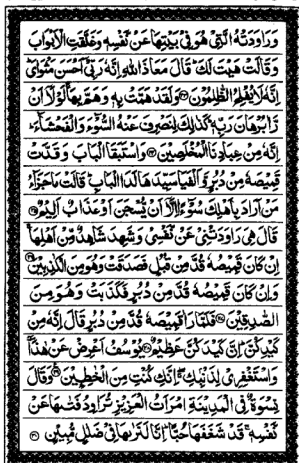 وَرَاوَدَتْهُ الَّتِیْ هُوَ فِیْ بَیْتِهَا عَنْ نَّفْسِهٖ وَغَلَّقَتِ الْاَبْوَابَ
وَقَالَتْ هَیْتَ لَكَ ؕ قَالَ مَعَاذَ اللّٰهِ اِنَّهٗ رَبِّیْۤ اَحْسَنَ مَثْوَایَ ؕ
اِنَّهٗ لَا یُفْلِحُ الظّٰلِمُوْنَ ﴿۲۳﴾ وَلَقَدْ هَمَّتْ بِهٖ ۚ وَهَمَّ بِهَا لَوْلَاۤ اَنْ
رَّاٰ بُرْهَانَ رَبِّهٖ ؕ كَذٰلِكَ لِنَصْرِفَ عَنْهُ السُّوْٓءَ وَالْفَحْشَآءَ ؕ
اِنَّهٗ مِنْ عِبَادِنَا الْمُخْلَصِیْنَ ﴿۲۴﴾ وَاسْتَبَقَا الْبَابَ وَقَدَّتْ
قَمِیْصَهٗ مِنْ دُبُرٍ وَّاَلْفَیَا سَیِّدَهَا لَدَا الْبَابِ ؕ قَالَتْ مَا جَزَآءُ
مَنْ اَرَادَ بِاَهْلِكَ سُوْٓءًا اِلَّاۤ اَنْ یُّسْجَنَ اَوْ عَذَابٌ اَلِیْمٌ ﴿۲۵﴾
قَالَ هِیَ رَاوَدَتْنِیْ عَنْ نَّفْسِیْ وَشَهِدَ شَاهِدٌ مِّنْ اَهْلِهَا ۚ
اِنْ كَانَ قَمِیْصُهٗ قُدَّ مِنْ قُبُلٍ فَصَدَقَتْ وَهُوَ مِنَ الْكٰذِبِیْنَ ﴿۲۶﴾
وَاِنْ كَانَ قَمِیْصُهٗ قُدَّ مِنْ دُبُرٍ فَكَذَبَتْ وَهُوَ مِنَ
الصّٰدِقِیْنَ ﴿۲۷﴾ فَلَمَّا رَاٰ قَمِیْصَهٗ قُدَّ مِنْ دُبُرٍ قَالَ اِنَّهٗ مِنْ
كَیْدِكُنَّ ؕ اِنَّ كَیْدَكُنَّ عَظِیْمٌ ﴿۲۸﴾ یُوْسُفُ اَعْرِضْ عَنْ هٰذَا ٚ
وَاسْتَغْفِرِیْ لِذَنْۢبِكِ ۖۚ اِنَّكِ كُنْتِ مِنَ الْخٰطِـِٕیْنَ ﴿۲۹﴾ وَقَالَ
نِسْوَةٌ فِی الْمَدِیْنَةِ امْرَاَتُ الْعَزِیْزِ تُرَاوِدُ فَتٰىهَا عَنْ
نَّفْسِهٖ ۚ قَدْ شَغَفَهَا حُبًّا ؕ اِنَّا لَنَرٰىهَا فِیْ ضَلٰلٍ مُّبِیْنٍ ﴿۳۰﴾